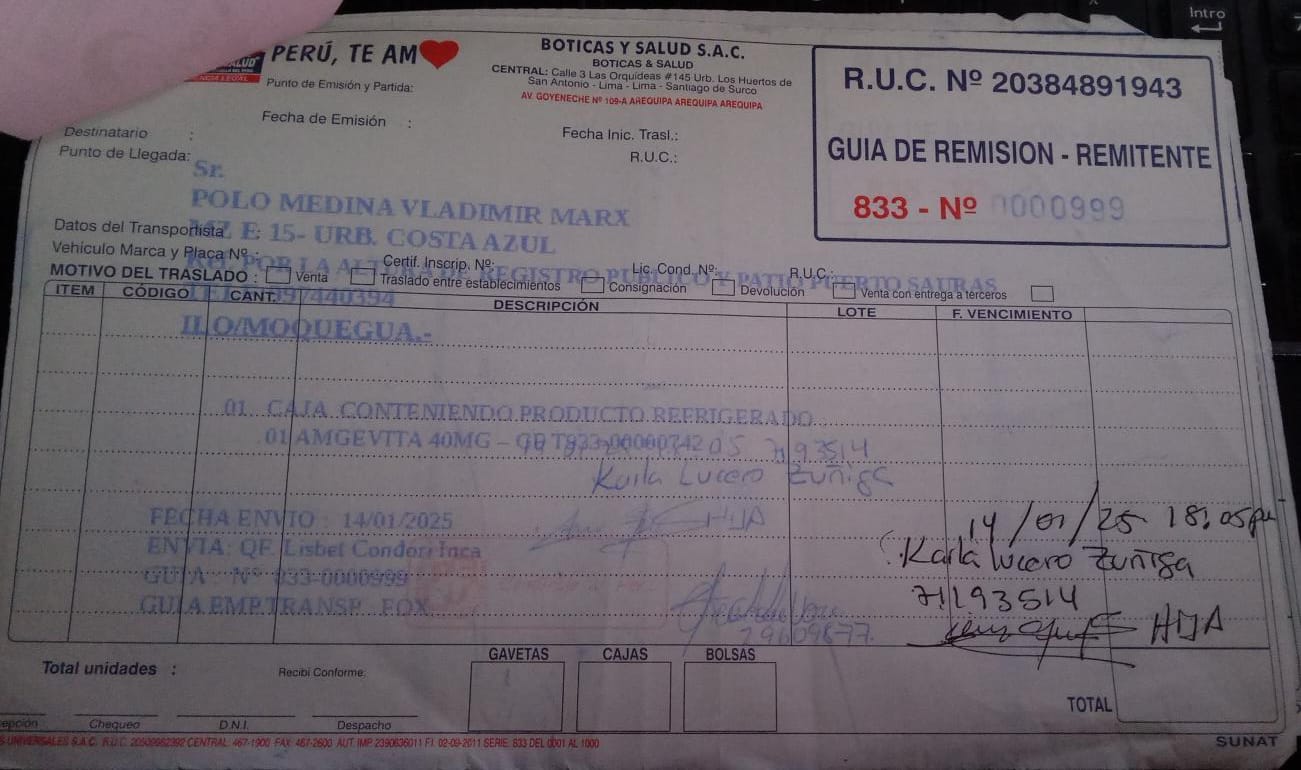 Intro
SALUD
PERÚ, TE AM
BOTICAS Y SALUD S.A.C.
BOTICAS & SALUD
CENTRAL: Calle 3 Las Orquídeas #145 Urb. Los Huertos de
San Antonio - Lima - Lima - Santiago de Surco
AV. GOYENECHE Nº 109-A AREQUIPA AREQUIPA AREQUIPA
R.U.C. Nº 20384891943
GUIA DE REMISION - REMITENTE
833 - Nº 0000999
Punto de Emisión y Partida:
Fecha de Emisión :
Fecha Inic. Trasl.:
Destinatario :
R.U.C.:
Punto de Llegada:
Sr.
POLO MEDINA VLADIMIR MARX
Datos del Transportista
MZ E: 15- URB. COSTA AZUL
Vehículo Marca y Placa Nº :
Certif. Inscrip. Nº:
Lic. Cond. Nº:
R.U.C.:
POR LA ALTURA DE REGISTRO PUBLICO Y PATIO PUERTO
MOTIVO DEL TRASLADO : Venta Traslado entre establecimientos Consignación Devolución Venta con entrega a terceros
ITEM CÓDIGO CANT. DESCRIPCIÓN LOTE F. VENCIMIENTO
ILO/MOQUEGUA.-
01 CAJA CONTENIENDO PRODUCTO REFRIGERADO
01 AMGEVITA 40MG –
Karla Lucero Zuñiga
HIJA
FECHA ENVIO : 14/01/2025
ENVIA: QF. Lisbet Condori Inca
GUIA : Nº 833-0000999
GUIA EMP.TRANSP. FOX
29609877
14/01/25 18:05pm
Karla Lucero Zuñiga
71193514
HIJA
Total unidades :
Recibi Conforme:
GAVETAS CAJAS BOLSAS
TOTAL
Chequeo D.N.I. Despacho
UNIVERSALES S.A.C. R.U.C. 20509962392 CENTRAL: 467-1900 FAX: 467-2600 AUT. IMP. 2390636011 F.I. 02-09-2011 SERIE: 833 DEL 0001 AL 1000
SUNAT